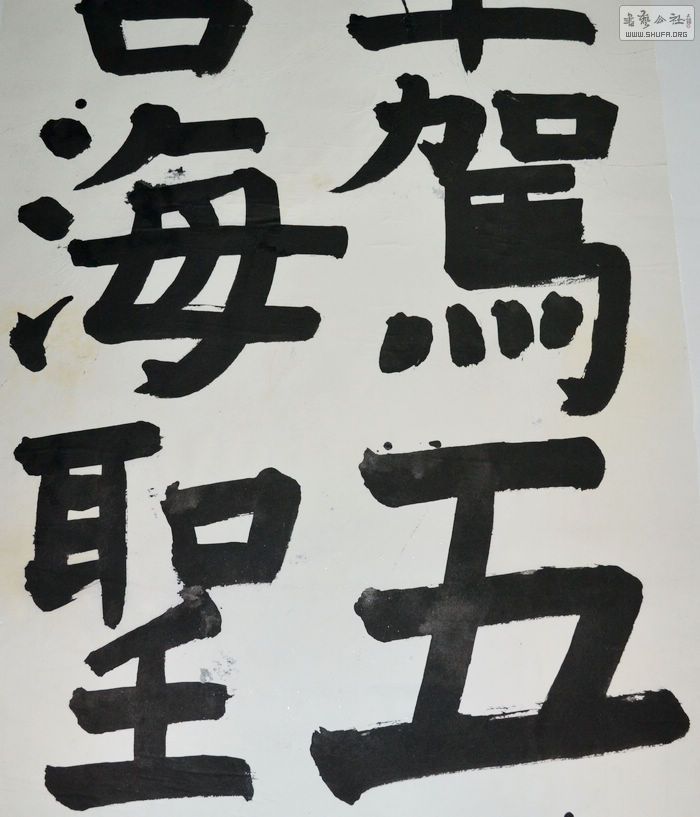 駕五
海聖
書藝公社
WWW.SHUFA.ORG